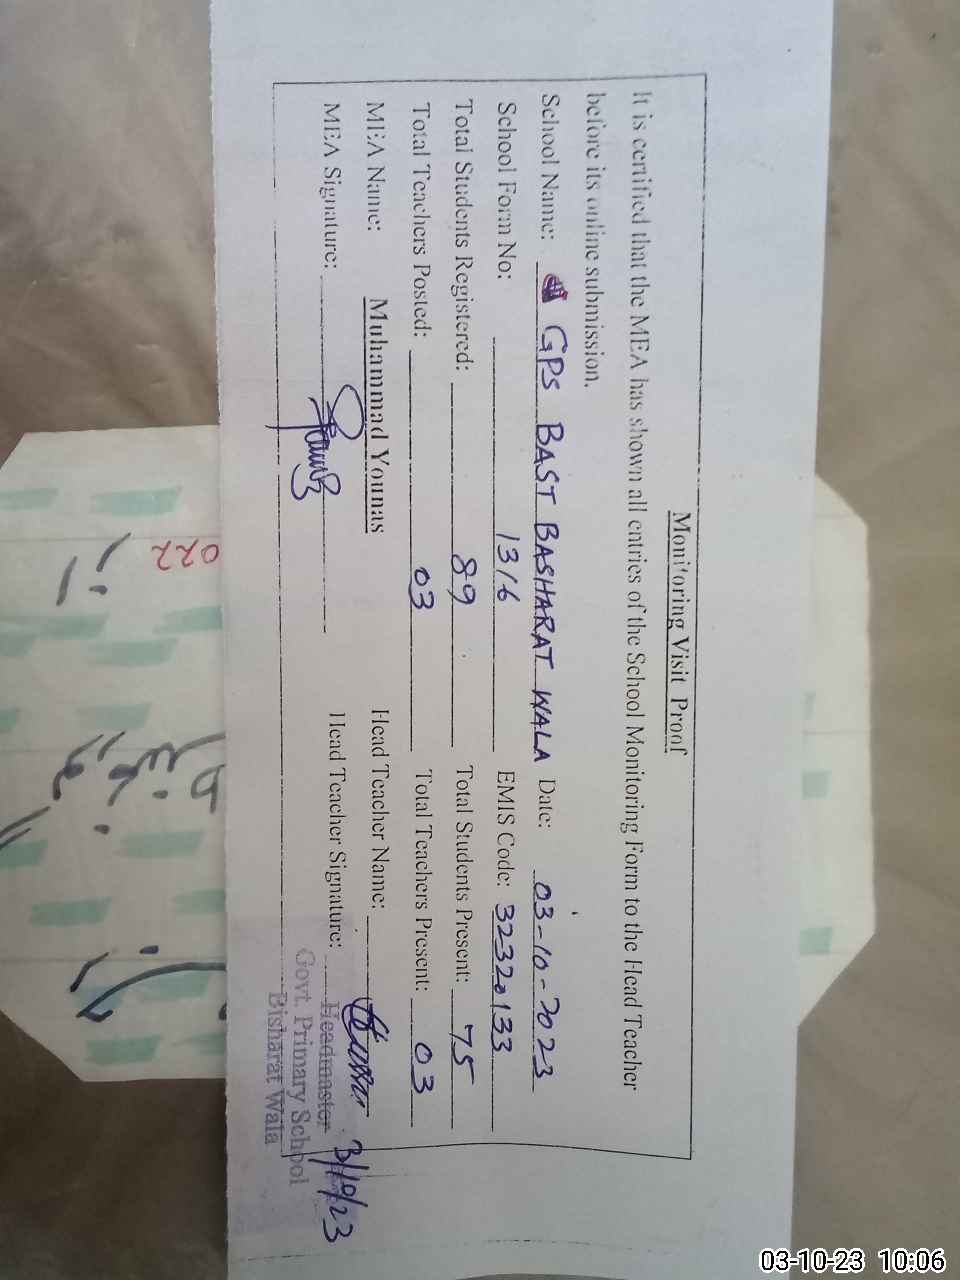 Monitoring Visit Proof
It is certified that the MEA has shown all entries of the School Monitoring Form to the Head Teacher
before its online submission.
School Name: GPS BAST BASHARAT WALA Date: 03-10-2023
School Form No: 1316 EMIS Code: 32320133
Total Students Registered: 89 Total Students Present: 75
Total Teachers Posted: 03 Total Teachers Present: 03
MEA Name: Muhammad Younas Head Teacher Name:
MEA Signature: Head Teacher Signature:
3/10/23
Headmaster
Govt. Primary School
Bisharat Wala
022
03-10-23 10:06